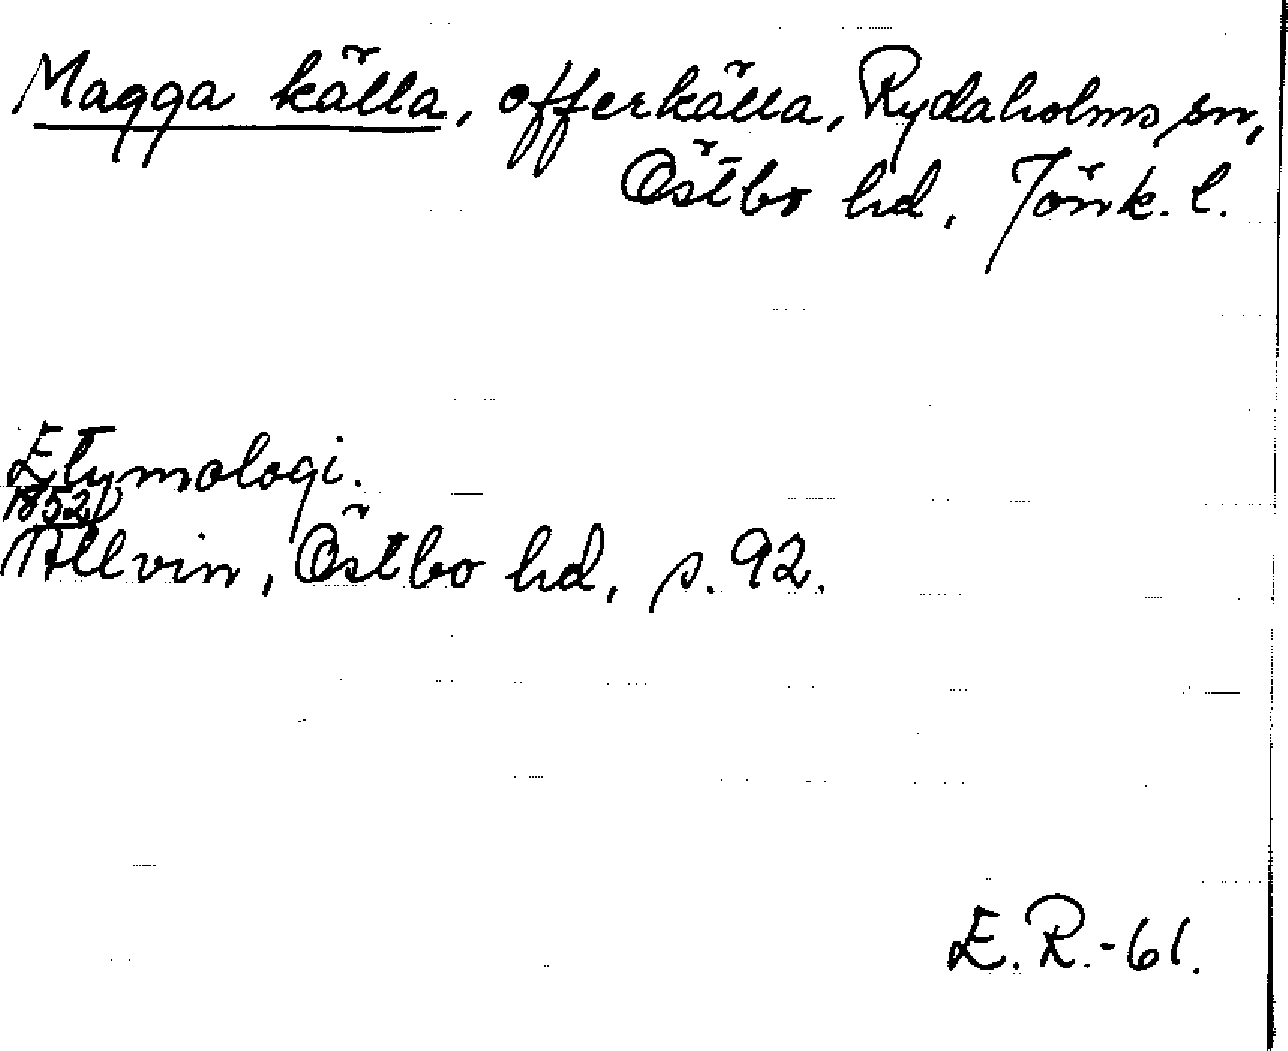 Magga källa, offerkälla, Rydaholms sn,
Östbo hd, Jönk. l.
Etymologi.
1852
Allvin, Östbo hd, s. 92.
E. R.-61.